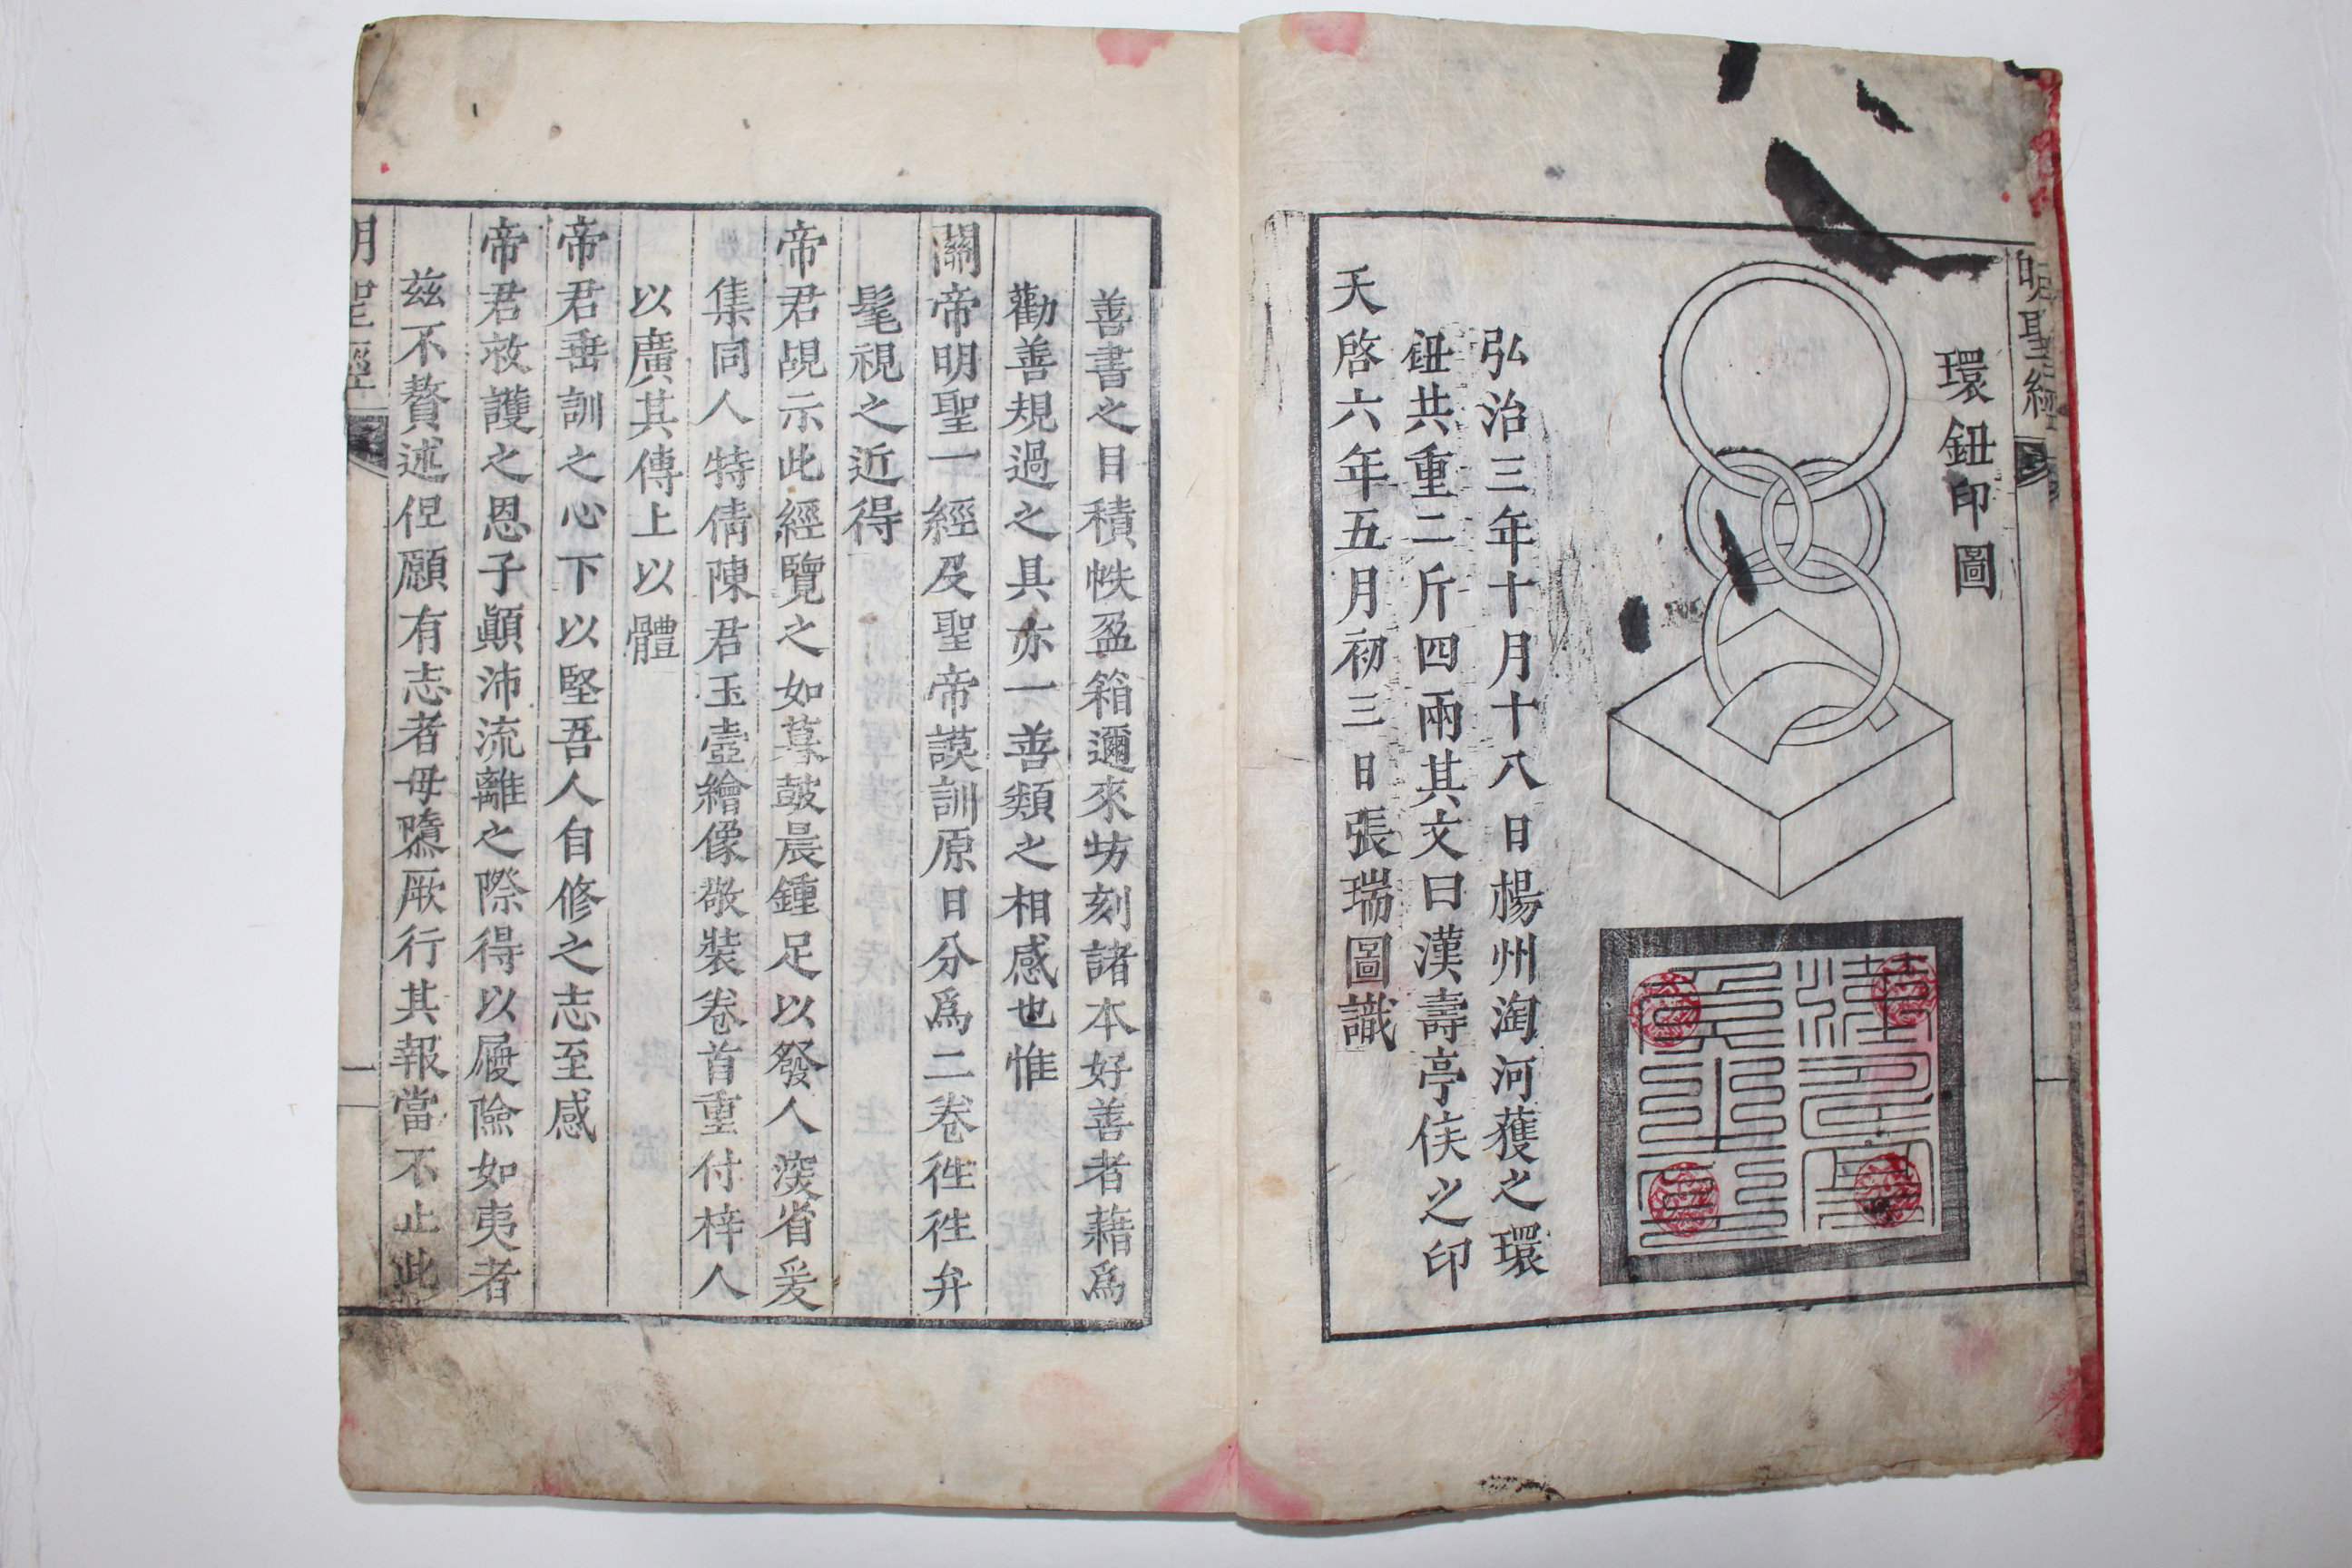 明聖經
環鈕印圖
弘治三年十月十八日楊州淘河獲之環
鈕共重二斤四兩其文曰漢壽亭侯之印
天啓六年五月初三日張瑞圖識
善書之目積帙盈箱邇來坊刻諸本好善者藉爲
勸善規過之具亦一善類之相感也惟
關帝明聖一經及聖帝謨訓原日分爲二卷徃徃弁
髦視之近得
帝君覘示此經覽之如暮鼓晨鍾足以發人深省爰
集同人特倩陳君玉壺繪像敬裝卷首重付梓人
以廣其傳上以體
帝君垂訓之心下以堅吾人自修之志至感
帝君救護之恩子顚沛流離之際得以履險如夷者
茲不贅述但願有志者毋隳厥行其報當不止此
明聖經
一